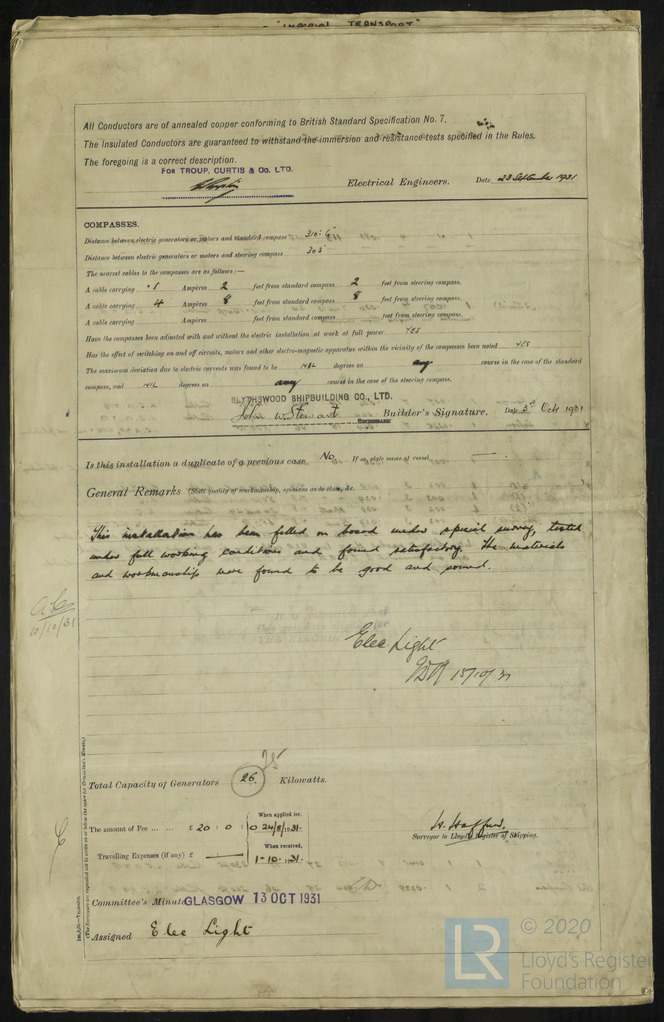 "IMPERIAL TRANSPORT"
All Conductors are of annealed copper conforming to British Standard Specification No. 7.
The Insulated Conductors are guaranteed to withstand the immersion and resistance tests specified in the Rules.
The foregoing is a correct description.
FOR TROUP, CURTIS & Co. LTD.
Electrical Engineers. Date 23 September 1931
COMPASSES.
Distance between electric generators or motors and standard compass 310' 6"
Distance between electric generators or motors and steering compass 305
The nearest cables to the compasses are as follows:—
A cable carrying .1 Ampères 2 feet from standard compass 2 feet from steering compass.
A cable carrying 4 Ampères 8 feet from standard compass 8 feet from steering compass.
A cable carrying Ampères feet from standard compass feet from steering compass.
Have the compasses been adjusted with and without the electric installation at work at full power YES
Has the effect of switching on and off circuits, motors and other electro-magnetic apparatus within the vicinity of the compasses been noted YES
The maximum deviation due to electric currents was found to be NIL degrees on any course in the case of the standard
compass, and NIL degrees on any course in the case of the steering compass.
BLYTHSWOOD SHIPBUILDING CO., LTD.
John W. Stewart Builder's Signature. Date 3rd Octr 1931
Is this installation a duplicate of a previous case No. If so, state name of vessel —
General Remarks (State quality of workmanship, opinions as to class, &c.
This installation has been fitted on board under special survey, tested
under full working conditions and found satisfactory. The materials
and workmanship were found to be good and sound.
10/10/31
Elec Light
15/10/31
25
Total Capacity of Generators 26. Kilowatts.
When applied for,
The amount of Fee ... ... £ 20 : 0 : 0 24/9/1931.
When received,
Travelling Expenses (if any) £ — 1-10-1931.
Surveyor to Lloyd's Register of Shipping.
Committee's Minute GLASGOW 13 OCT 1931
Assigned Elec Light
© 2020
LR
Lloyd's Register
Foundation